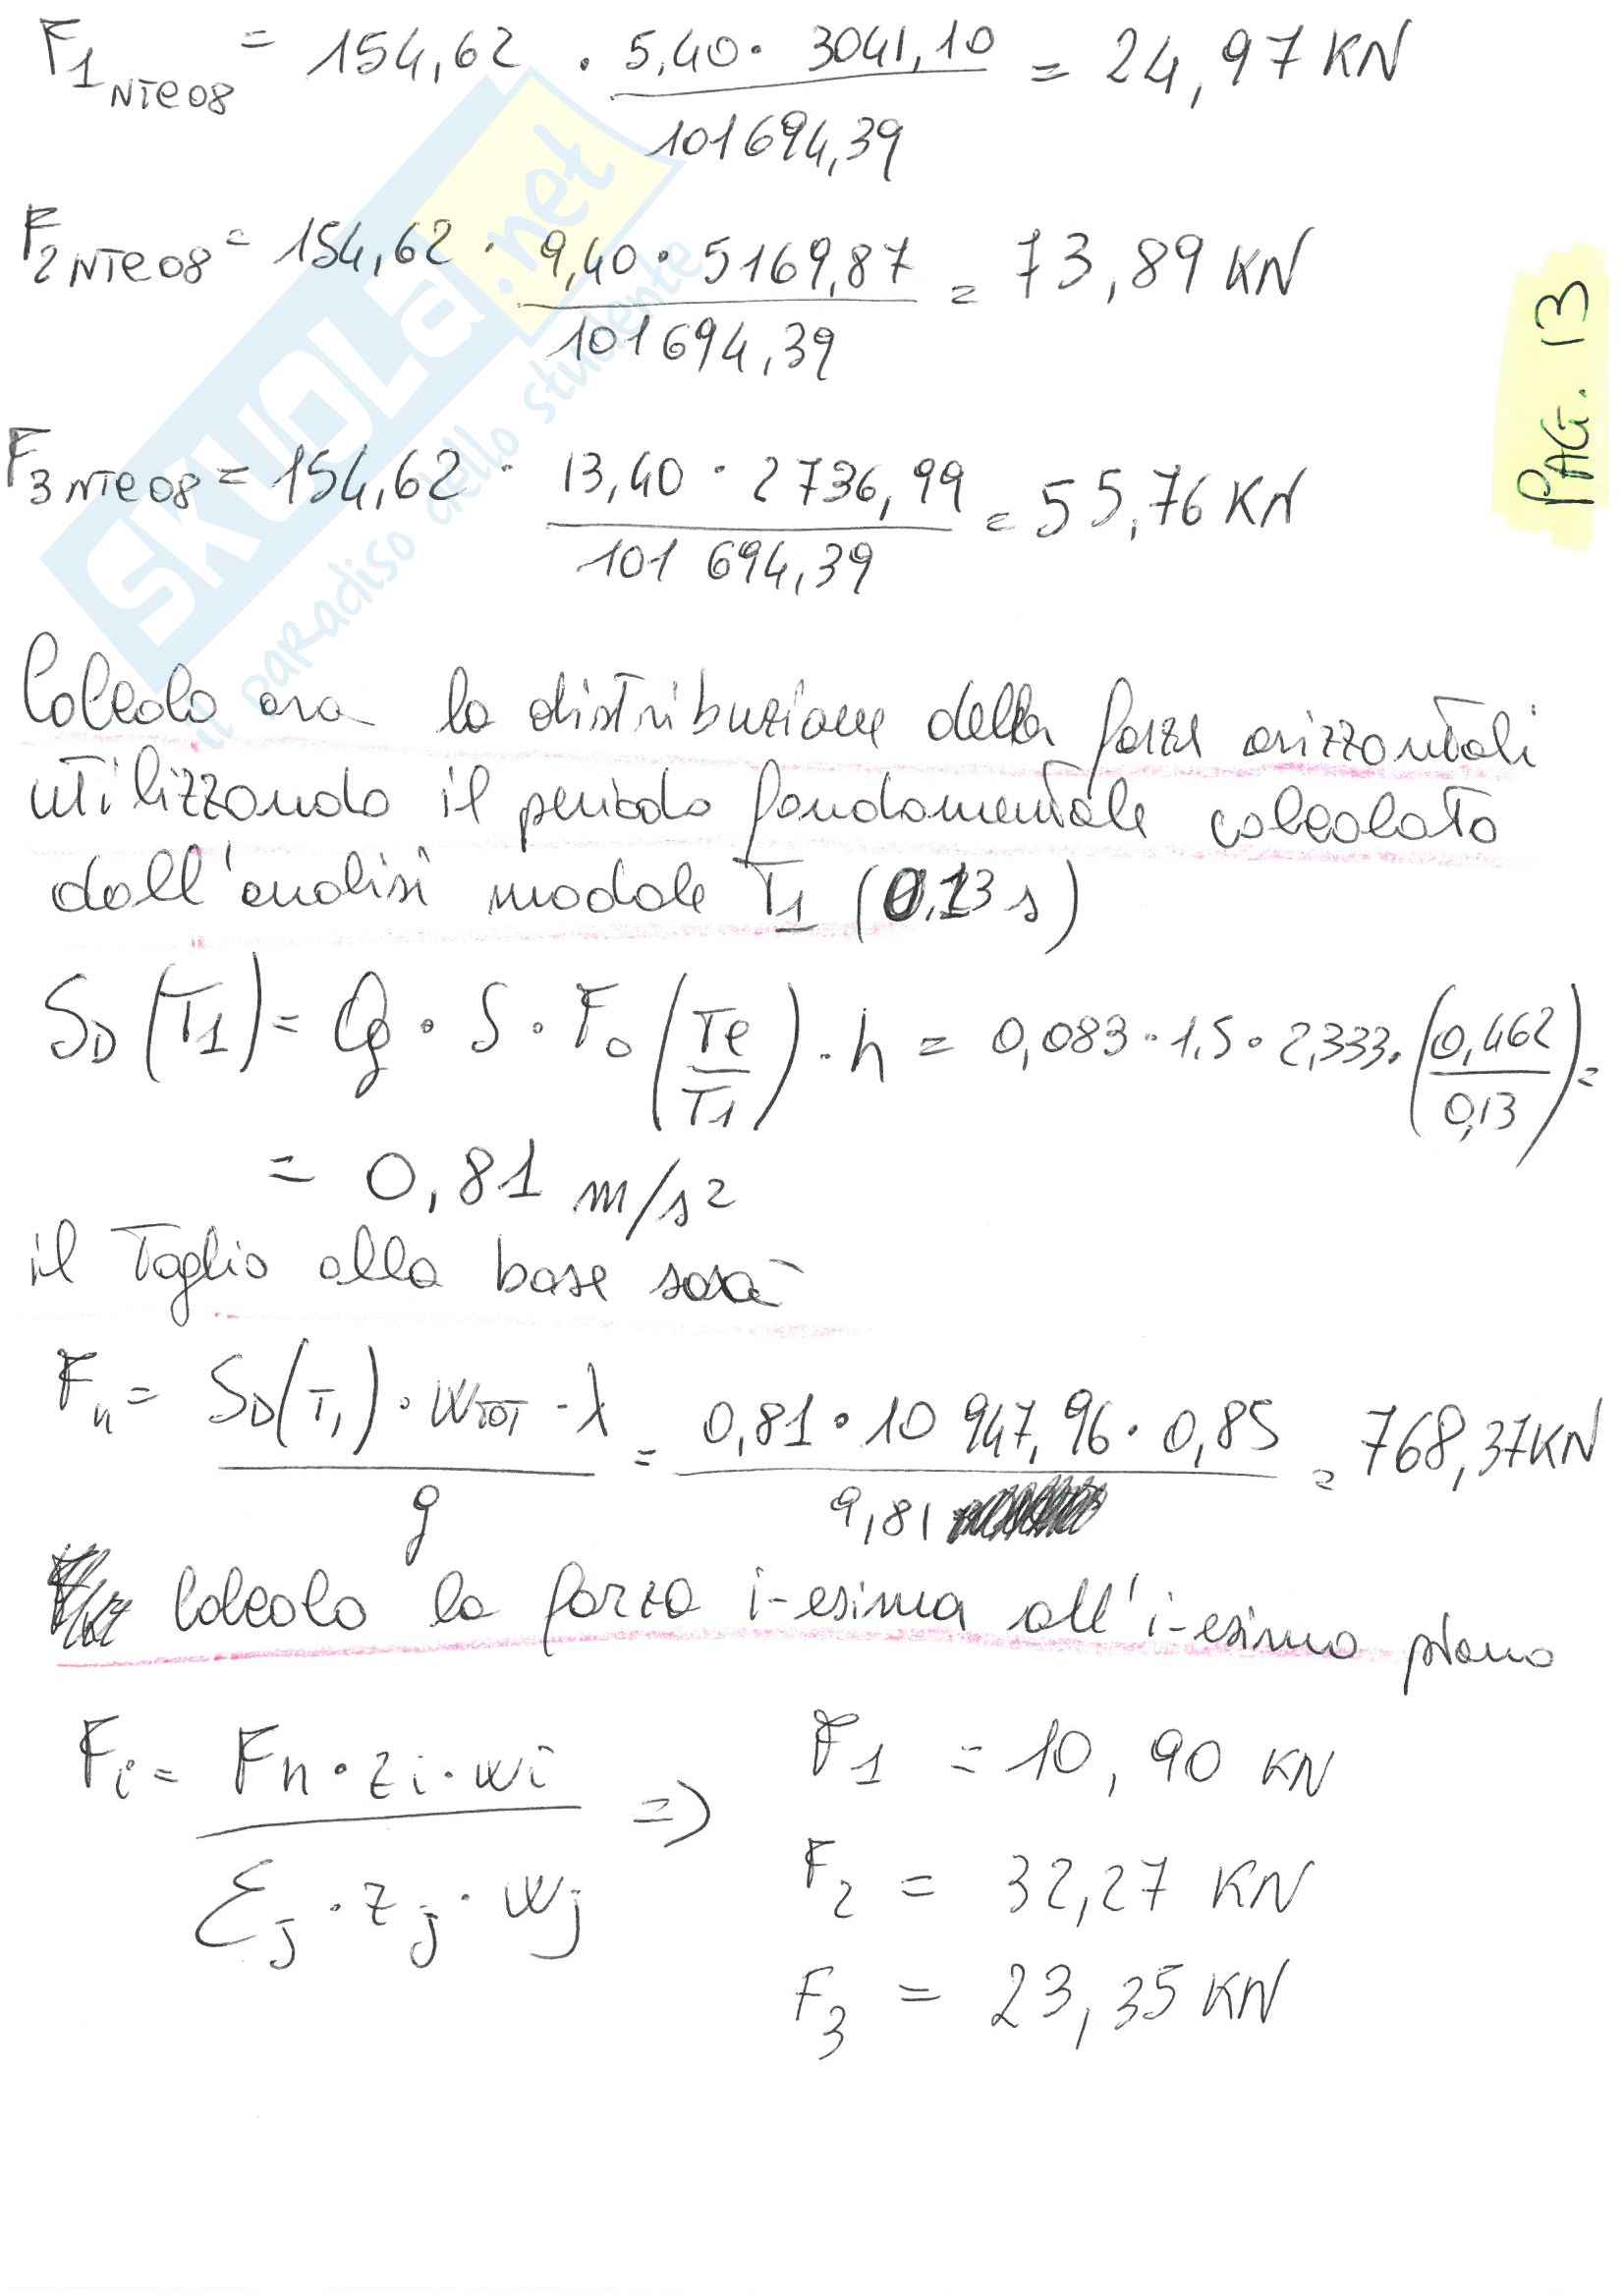 F1 NTC08 = 154,62 · 5,40 · 3041,10 / 101694,39 = 24,97 KN
F2 NTC08 = 154,62 · 9,40 · 5169,87 / 101694,39 = 73,89 KN
F3 NTC08 = 154,62 · 13,40 · 2736,99 / 101694,39 = 55,76 KN
PAG. 13
Calcolo ora la distribuzione della forze orizzontali
utilizzando il periodo fondamentale calcolato
dall'analisi modale T1 (0.13 s)
SD (T1) = ag · S · F0 (Tc / T1) · h = 0,083 · 1,5 · 2,333 · (0,462 / 0,13) =
= 0,81 m/s²
il taglio alla base sarà
Fh = SD(T1) · WTOT · λ / g = 0,81 · 10947,96 · 0,85 / 9,81 = 768,37 KN
Calcolo la forza i-esima all'i-esimo piano
Fi = Fh · zi · wi / Σj · zj · wj => F1 = 10,90 KN
F2 = 32,27 KN
F3 = 23,35 KN
SKUOLA.net
il paradiso dello studente